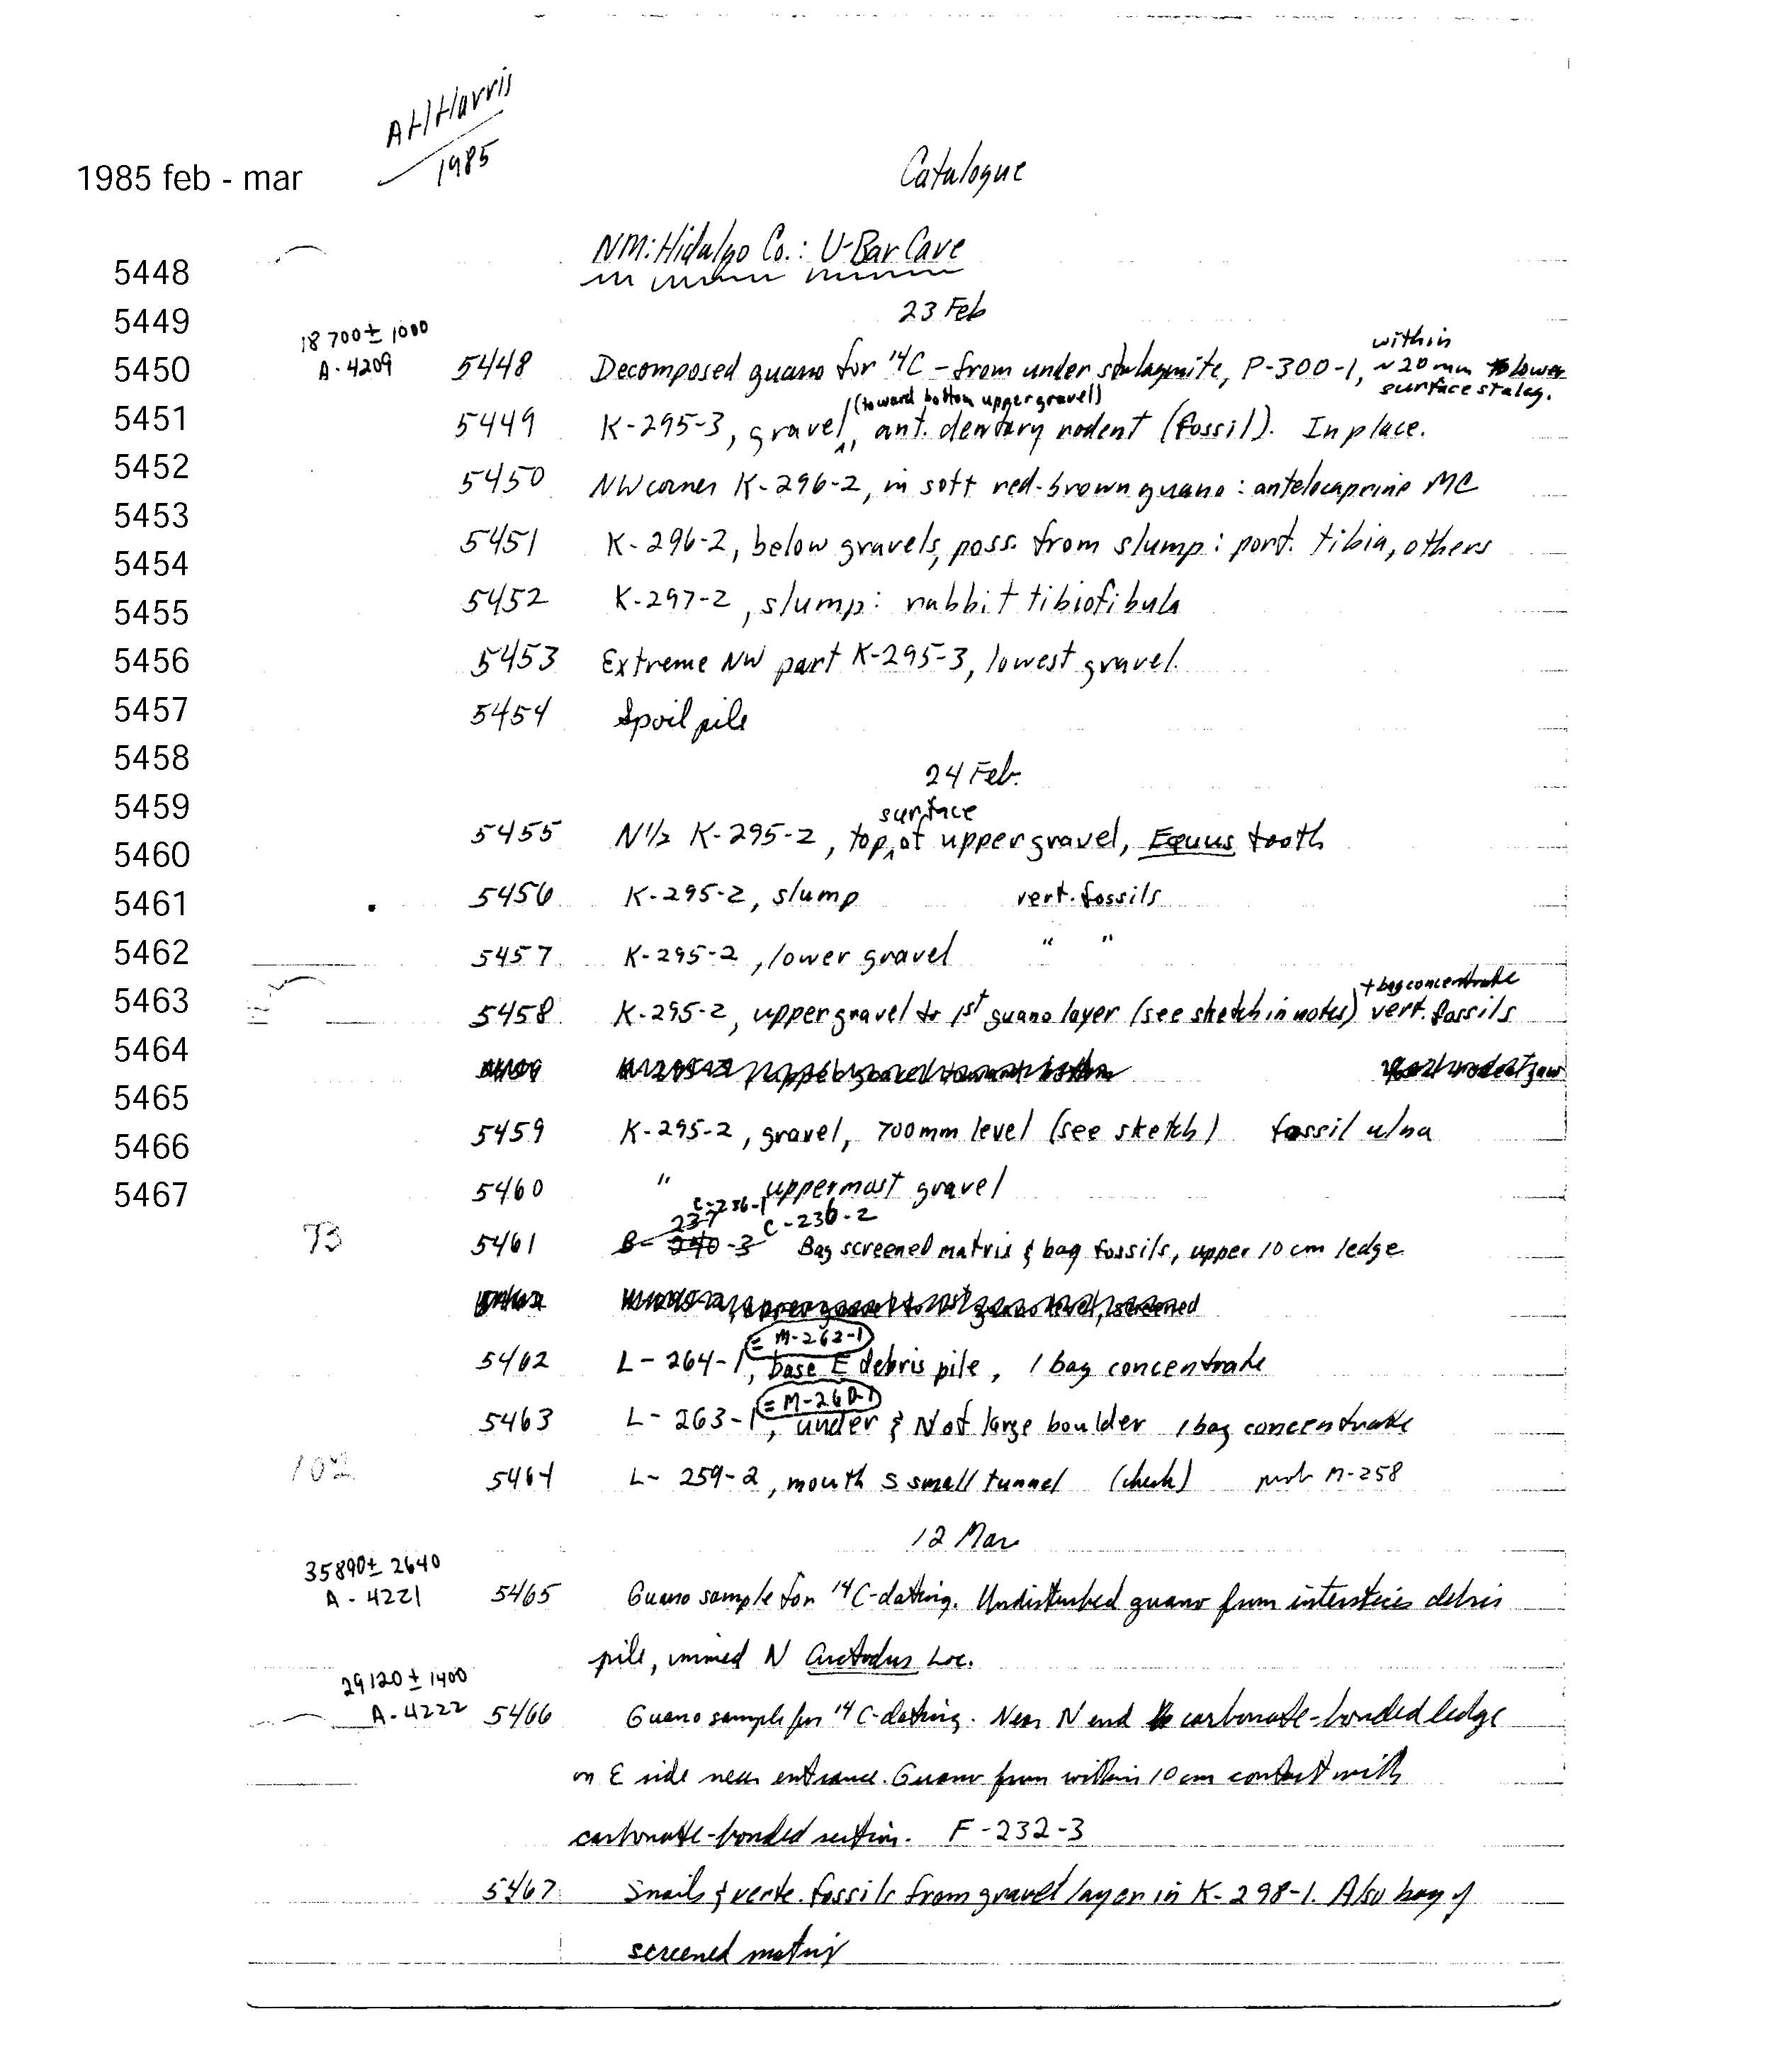 AHHarris
1985
1985 feb - mar
Catalogue
NM: Hidalgo Co.: U-Bar Cave
23 Feb
5448
5449
5450
5451
5452
5453
5454
5455
5456
5457
5458
5459
5460
5461
5462
5463
5464
5465
5466
5467
18700 ± 1000
A-4209
within
5448 Decomposed guano for 14C - from under stalagmite, P-300-1, ~20 mm lower
surface stalag.
(toward bottom upper gravel)
5449 K-295-3, gravel, ant. dentary rodent (fossil). In place.
5450 NW corner K-296-2, in soft red-brown guano: antelocaprine MC
5451 K-296-2, below gravels, poss. from slump: port. tibia, others
5452 K-297-2, slump: rabbit tibiofibula
5453 Extreme NW part K-295-3, lowest gravel.
5454 Spoil pile
24 Feb.
surface
5455 N½ K-295-2, top of upper gravel, Equus tooth
5456 K-295-2, slump vert. fossils
5457 K-295-2, lower gravel " "
+ bag concentrate
5458 K-295-2, upper gravel to 1st guano layer (see sketch in notes) vert. fossils
5459 K-295-2, gravel, 700mm level (see sketch) fossil ulna
5460 " uppermost gravel
C-236-1
237 C-236-2
73
5461 B- 240 -3 Bag screened matrix & bag fossils, upper 10 cm ledge
= M-263-1
5462 L-264-1, base E debris pile, 1 bag concentrate
= M-260-1
5463 L-263-1, under & N of large boulder 1 bag concentrate
102
5464 L-259-2, mouth S small tunnel (check) prob M-258
12 Mar
35890 ± 2640
A-4221
5465 Guano sample for 14C-dating. Undisturbed guano from interstices debris
pile, immed N Arctodus Loc.
29120 ± 1400
A-4222
5466 Guano sample for 14C-dating. Near N end carbonate-bonded ledge
on E side near entrance. Guano from within 10 cm contact with
carbonate-bonded section. F-232-3
5467 Snails & verte. fossils from gravel layer in K-298-1. Also bag of
screened matrix